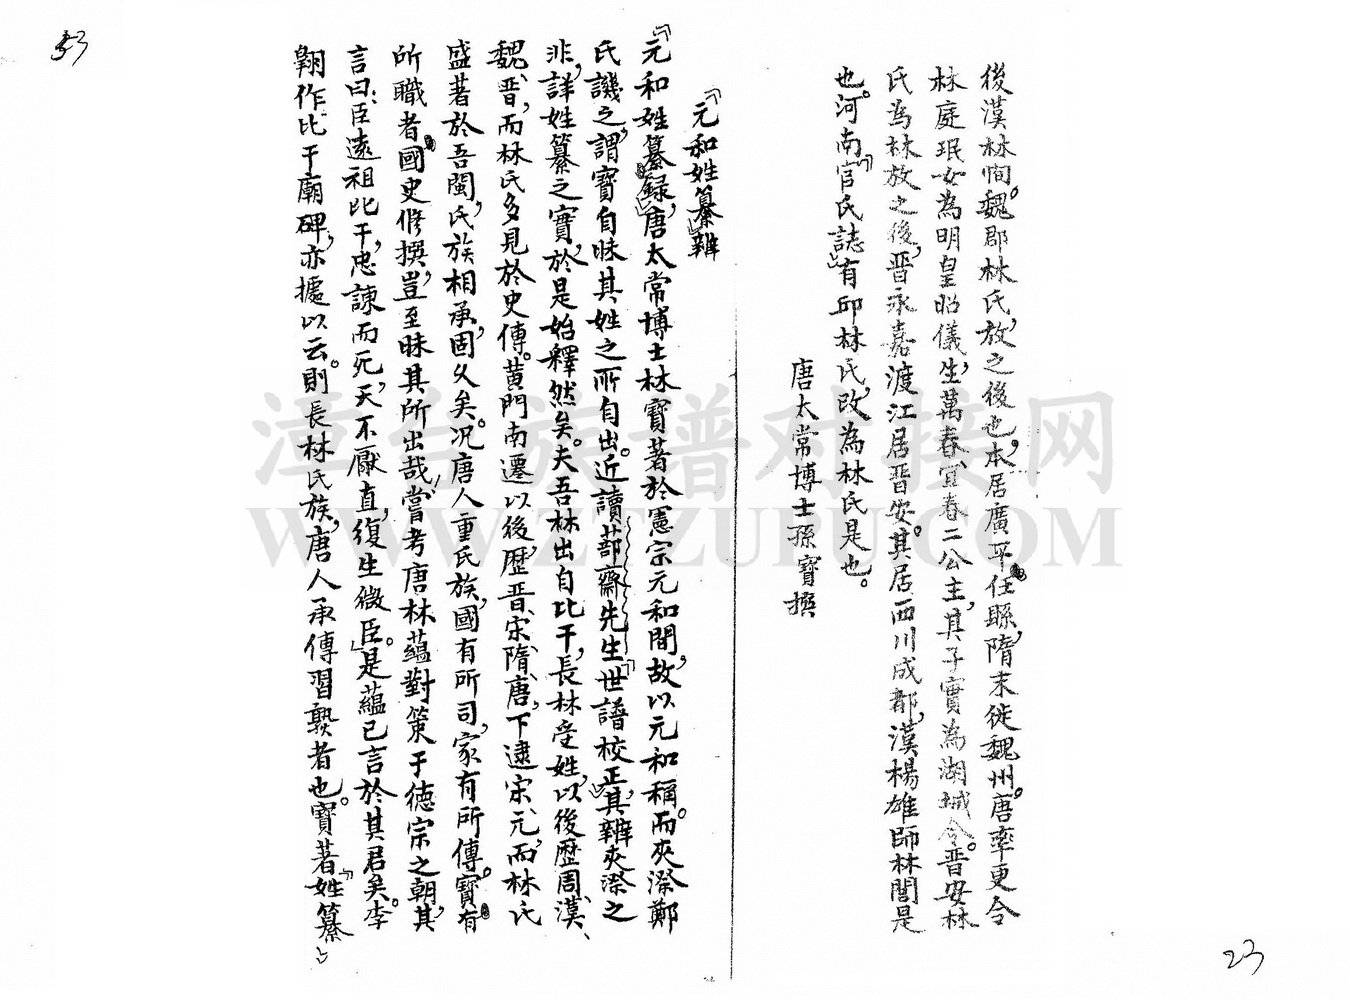 後漢林恂。魏郡林氏，放之後也，本居廣平任縣，隋末徙魏州。唐率更令
林庭珉女為明皇昭儀，生萬春、宜春二公主，其子實為湖城令。晋安林
氏為林放之後，晋永嘉渡江居晋安。其居西川成都，漢楊雄師林閭是
也。河南「官氏誌」有邱林氏，改為林氏是也。
唐太常博士孫寶撰
「元和姓纂」辨
「元和姓纂錄」，唐太常博士林寶著於憲宗元和間，故以元和稱。而夾漈鄭
氏譏之，謂寶自昧其姓之所自出。近讀蔀齋先生「世譜校正」，其辨夾漈之
非，詳姓纂之實，於是始釋然矣。夫吾林出自比干，長林受姓，以後歷周、漢、
魏、晋，而林氏多見於史傳。黄門南遷以後，歷晋、宋、隋、唐，下逮宋、元，而林氏
盛著於吾閩，氏族相承，固久矣。况唐人重氏族，國有所司，家有所傳。寶有
所職者國史修撰，豈至昧其所出哉，嘗考唐林蘊對策于德宗之朝，其
言曰：臣遠祖比干，忠諫而死，天不厭直，復生微臣。」是蘊已言於其君矣。李
翱作比干廟碑，亦據以云。則長林氏族，唐人承傳習熟者也。寶著「姓纂」
53
23
漳台族谱对接网
WWW.ZTZUPU.COM